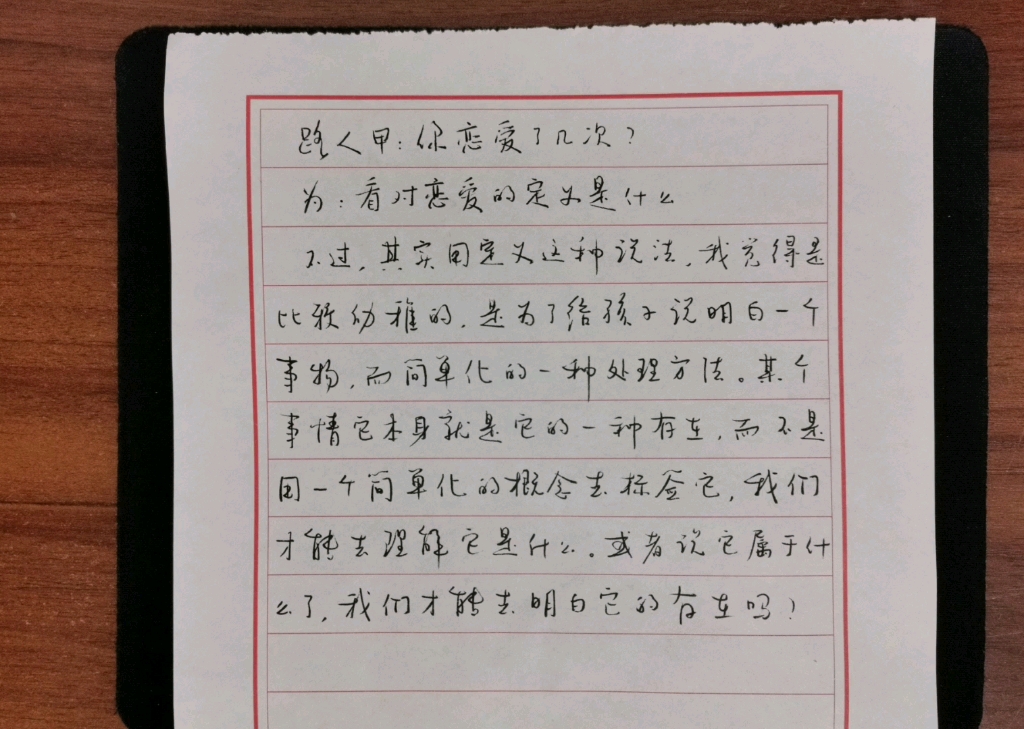 路人甲：你恋爱了几次？
为：看对恋爱的定义是什么
不过，其实用定义这种说法，我觉得是
比较幼稚的，是为了给孩子说明白一个
事物，而简单化的一种处理方法。某个
事情它本身就是它的一种存在，而不是
用一个简单化的概念去标签它，我们
才能去理解它是什么。或者说它属于什
么了，我们才能去明白它的存在吗？